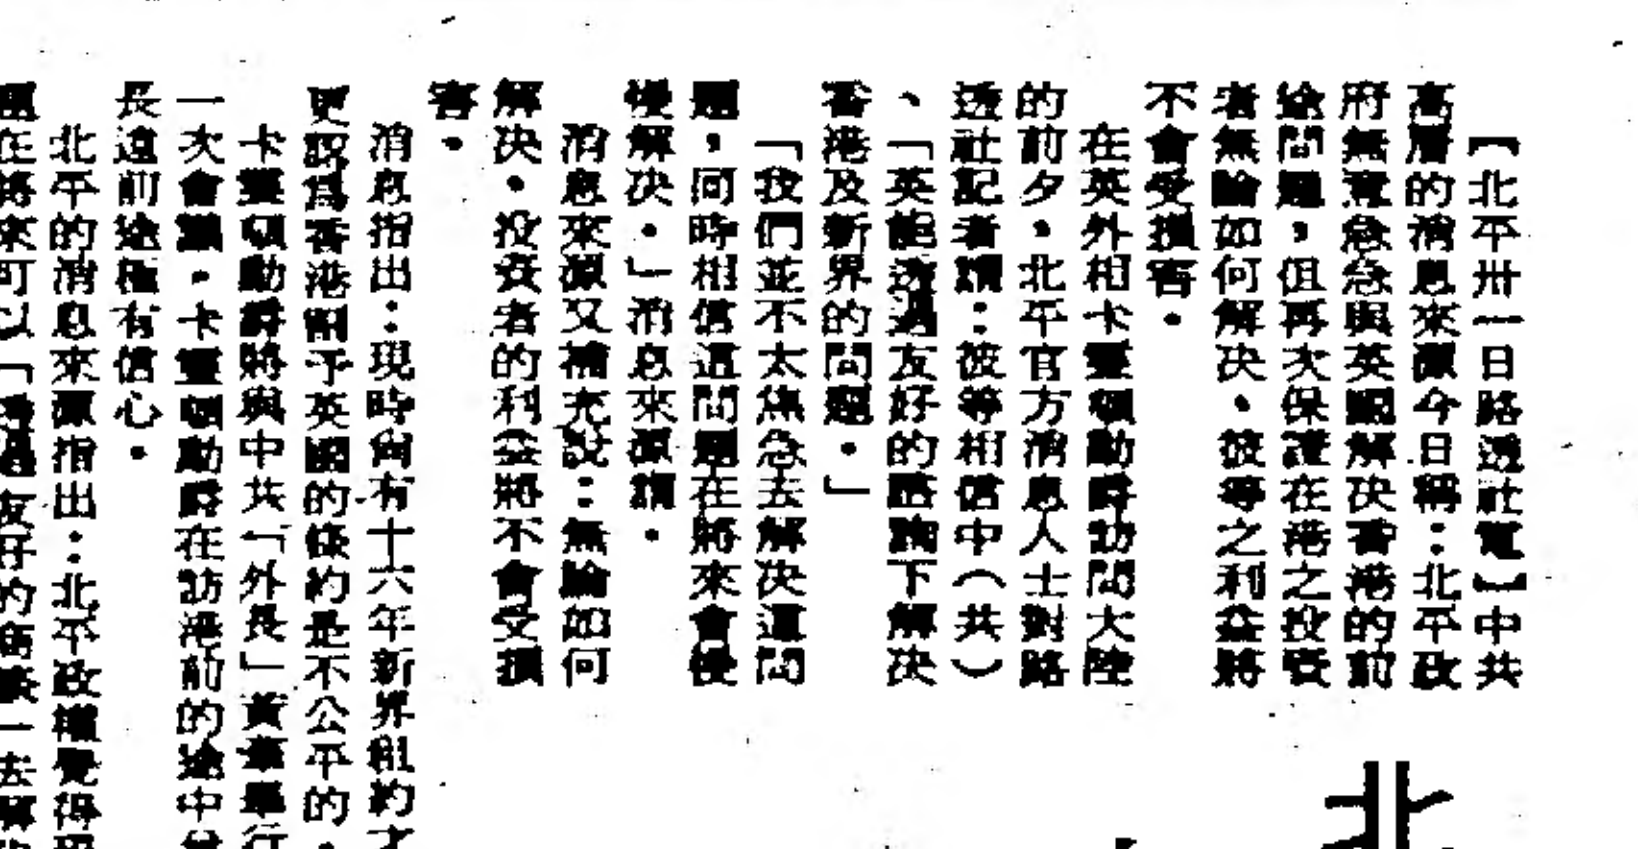 【北平卅一日路透社電】中共
高層的消息來源今日稱：北平政
府無意急急與英國解决香港的前
途問題，但再次保證在港之投資
者無論如何解决，彼等之利益將
不會受損害。
在英外相卡靈頓勳爵訪問大陸
的前夕，北平官方消息人士對路
透社記者謂：彼等相信中（共）
、「英能透過友好的商談下解决
香港及新界的問題。」
「我們並不太焦急去解决這問
題，同時相信這問題在將來會慢
慢解决。」消息來源謂。
消息來源又補充說：無論如何
解决，投資者的利益將不會受損
害。
消息指出：現時尚有十六年新界租約才
更認為香港割予英國的條約是不公平的，
卡靈頓勳爵將與中共「外長」黃華舉行
一次會議。卡靈頓勳爵在訪港前的途中曾
長遠前途極有信心。
北平的消息來源指出：北平政權覺得
題在將來可以「透過友好的商談」去解决
北